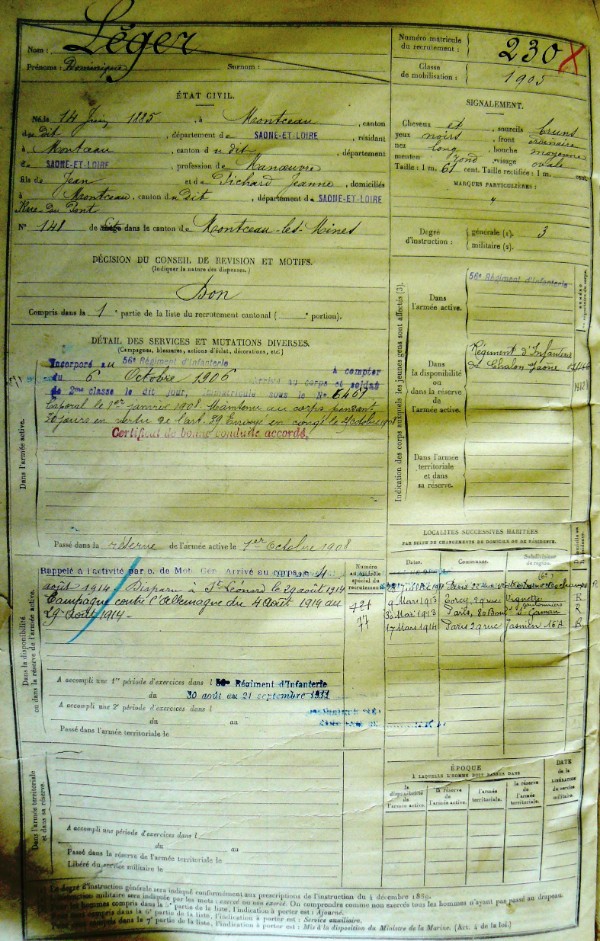 Nom : Léger
Prénoms : Dominique Surnom :
ÉTAT CIVIL.
Né le 14 Juin 1885, à Montceau, canton
du dit, département de SAONE-ET-LOIRE, résidant
à Montceau, canton du dit, département
de SAONE-ET-LOIRE, profession de Manœuvre
fils de Jean et de Pichard Jeanne, domiciliés
à Montceau, canton du dit, département de SAONE-ET-LOIRE
Rue du Pont
N° 148 de dans le canton de Montceau-les-Mines
DÉCISION DU CONSEIL DE REVISION ET MOTIFS.
(Indiquer la nature des dispenses.)
Bon
Compris dans la 1e partie de la liste du recrutement cantonal ( portion).
DÉTAIL DES SERVICES ET MUTATIONS DIVERSES.
(Campagnes, blessures, actions d'éclat, décorations, etc.)
Dans l'armée active.
Incorporé au 56e Régiment d'Infanterie à compter
du 6 Octobre 1906 arrivé au corps et soldat
de 2me classe le dit jour, immatriculé sous le N° 5401
Caporal le 1er janvier 1908 Maintenu au corps pendant
jours en vertu de l'art. 39 Envoyé en congé le
Certificat de bonne conduite accordé.
Passé dans la réserve de l'armée active le 1er Octobre 1908
Dans la disponibilité
ou dans la réserve de l'armée active.
Rappelé à l'activité par o. de Mob. Gén. Arrivé au corps le 4
août 1914 Disparu à St Léonard le 29 août 1914
Campagne contre l'Allemagne du 4 Août 1914 au
29 Août 1914
A accompli une 1re période d'exercices dans l 56e Régiment d'Infanterie
du 30 août au 21 septembre 1911
A accompli une 2e période d'exercices dans l
du au
Passé dans l'armée territoriale le
Dans l'armée territoriale
et dans sa réserve.
A accompli une période d'exercices dans l
du au
Passé dans la réserve de l'armée territoriale le
Libéré du service militaire le
Numéro matricule
du recrutement : 230
Classe
de mobilisation : 1905
SIGNALEMENT.
Cheveux et sourcils bruns
yeux noirs, front ordinaire
nez long, bouche moyenne
menton rond, visage ovale
Taille : 1 m. 61 cent. Taille rectifiée : 1 m. cent.
MARQUES PARTICULIÈRES :
Degré
d'instruction :
générale (1). 3
militaire (2).
Indication des corps auxquels les jeunes gens sont affectés (3).
Dans
l'armée active.
56e Régiment d'Infanterie
Dans
la disponibilité
ou dans
la réserve de
l'armée active.
Régiment d'Infanterie
Chalon Saône
Dans l'armée
territoriale et dans
sa réserve.
LOCALITÉS SUCCESSIVES HABITÉES
PAR SUITE DE CHANGEMENTS DE DOMICILE OU DE RÉSIDENCE.
Dates. Communes. Subdivision
de région.
Numéro
au contrôle
spécial du
recrutement
421
77
Paris
9 Mars 1913 rue Vignette R
Mai 1913 Paris, R
17 Mars 1914 Paris 29 rue Jasmin 16A R
ÉPOQUE
À LAQUELLE L'HOMME DOIT PASSER DANS
la disponibilité
de
l'armée active.
la réserve
de
l'armée active.
l'armée
territoriale.
la réserve
de l'armée
territoriale.
DATE
de la
LIBÉRATION
du service
militaire.
Le degré d'instruction générale sera indiqué conformément aux prescriptions de l'instruction du 4 décembre 1889.
L'instruction militaire sera indiquée par les mots : exercé ou non exercé. On comprendra comme non exercés tous les hommes n'ayant pas passé au drapeau.
hommes compris dans la 5e partie de la liste, l'indication à porter est : Ajourné.
compris dans la 6e partie de la liste, l'indication à porter est : Service auxiliaire.
compris dans la 7e partie de la liste, l'indication à porter est : Mis à la disposition du Ministre de la Marine. (Art. 4 de la loi.)